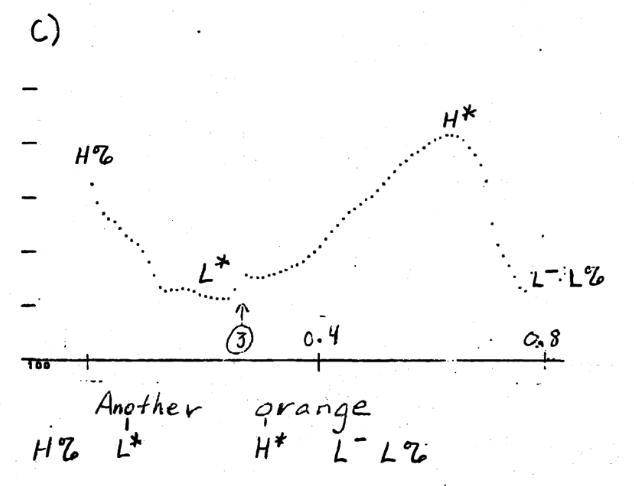 C)
H*
H%
L*
L⁻ L%
③
0.4
0.8
100
Another orange
H% L* H* L⁻ L%